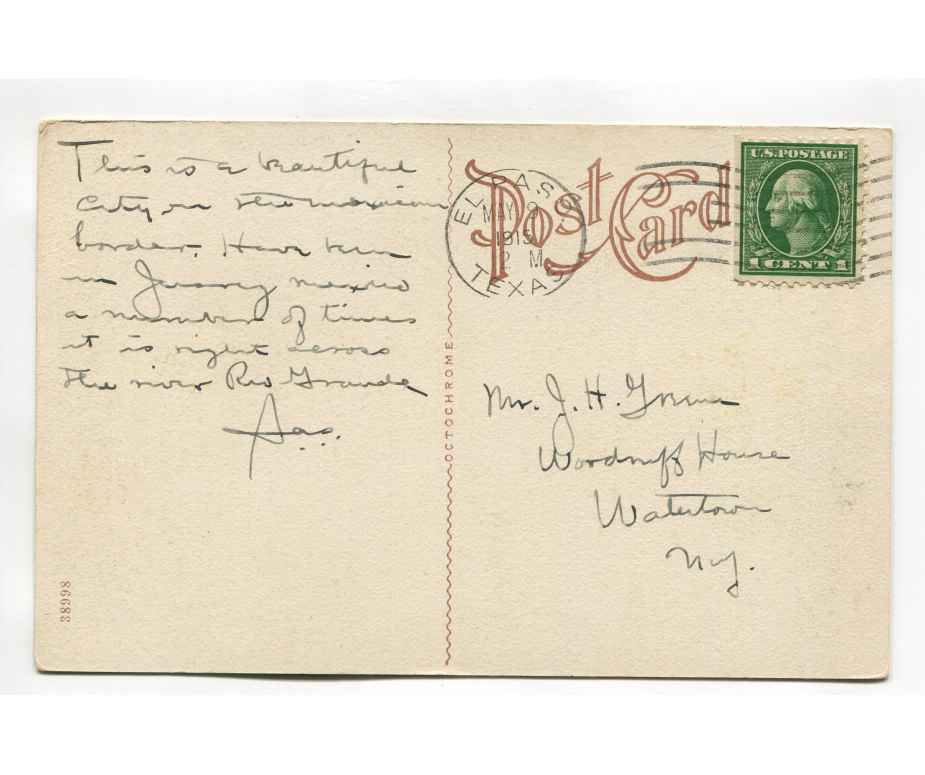 This is a beautiful
city on the mexican
border. Have been
in Juarez mexico
a number of times
it is right across
the river Rio Grande
Post Card
EL PASO
MAY
1915
M
TEXAS
U.S. POSTAGE
1 CENT 1
OCTOCHROME
Mr. J. H.
Woodruff House
Watertown
N.y.
38998